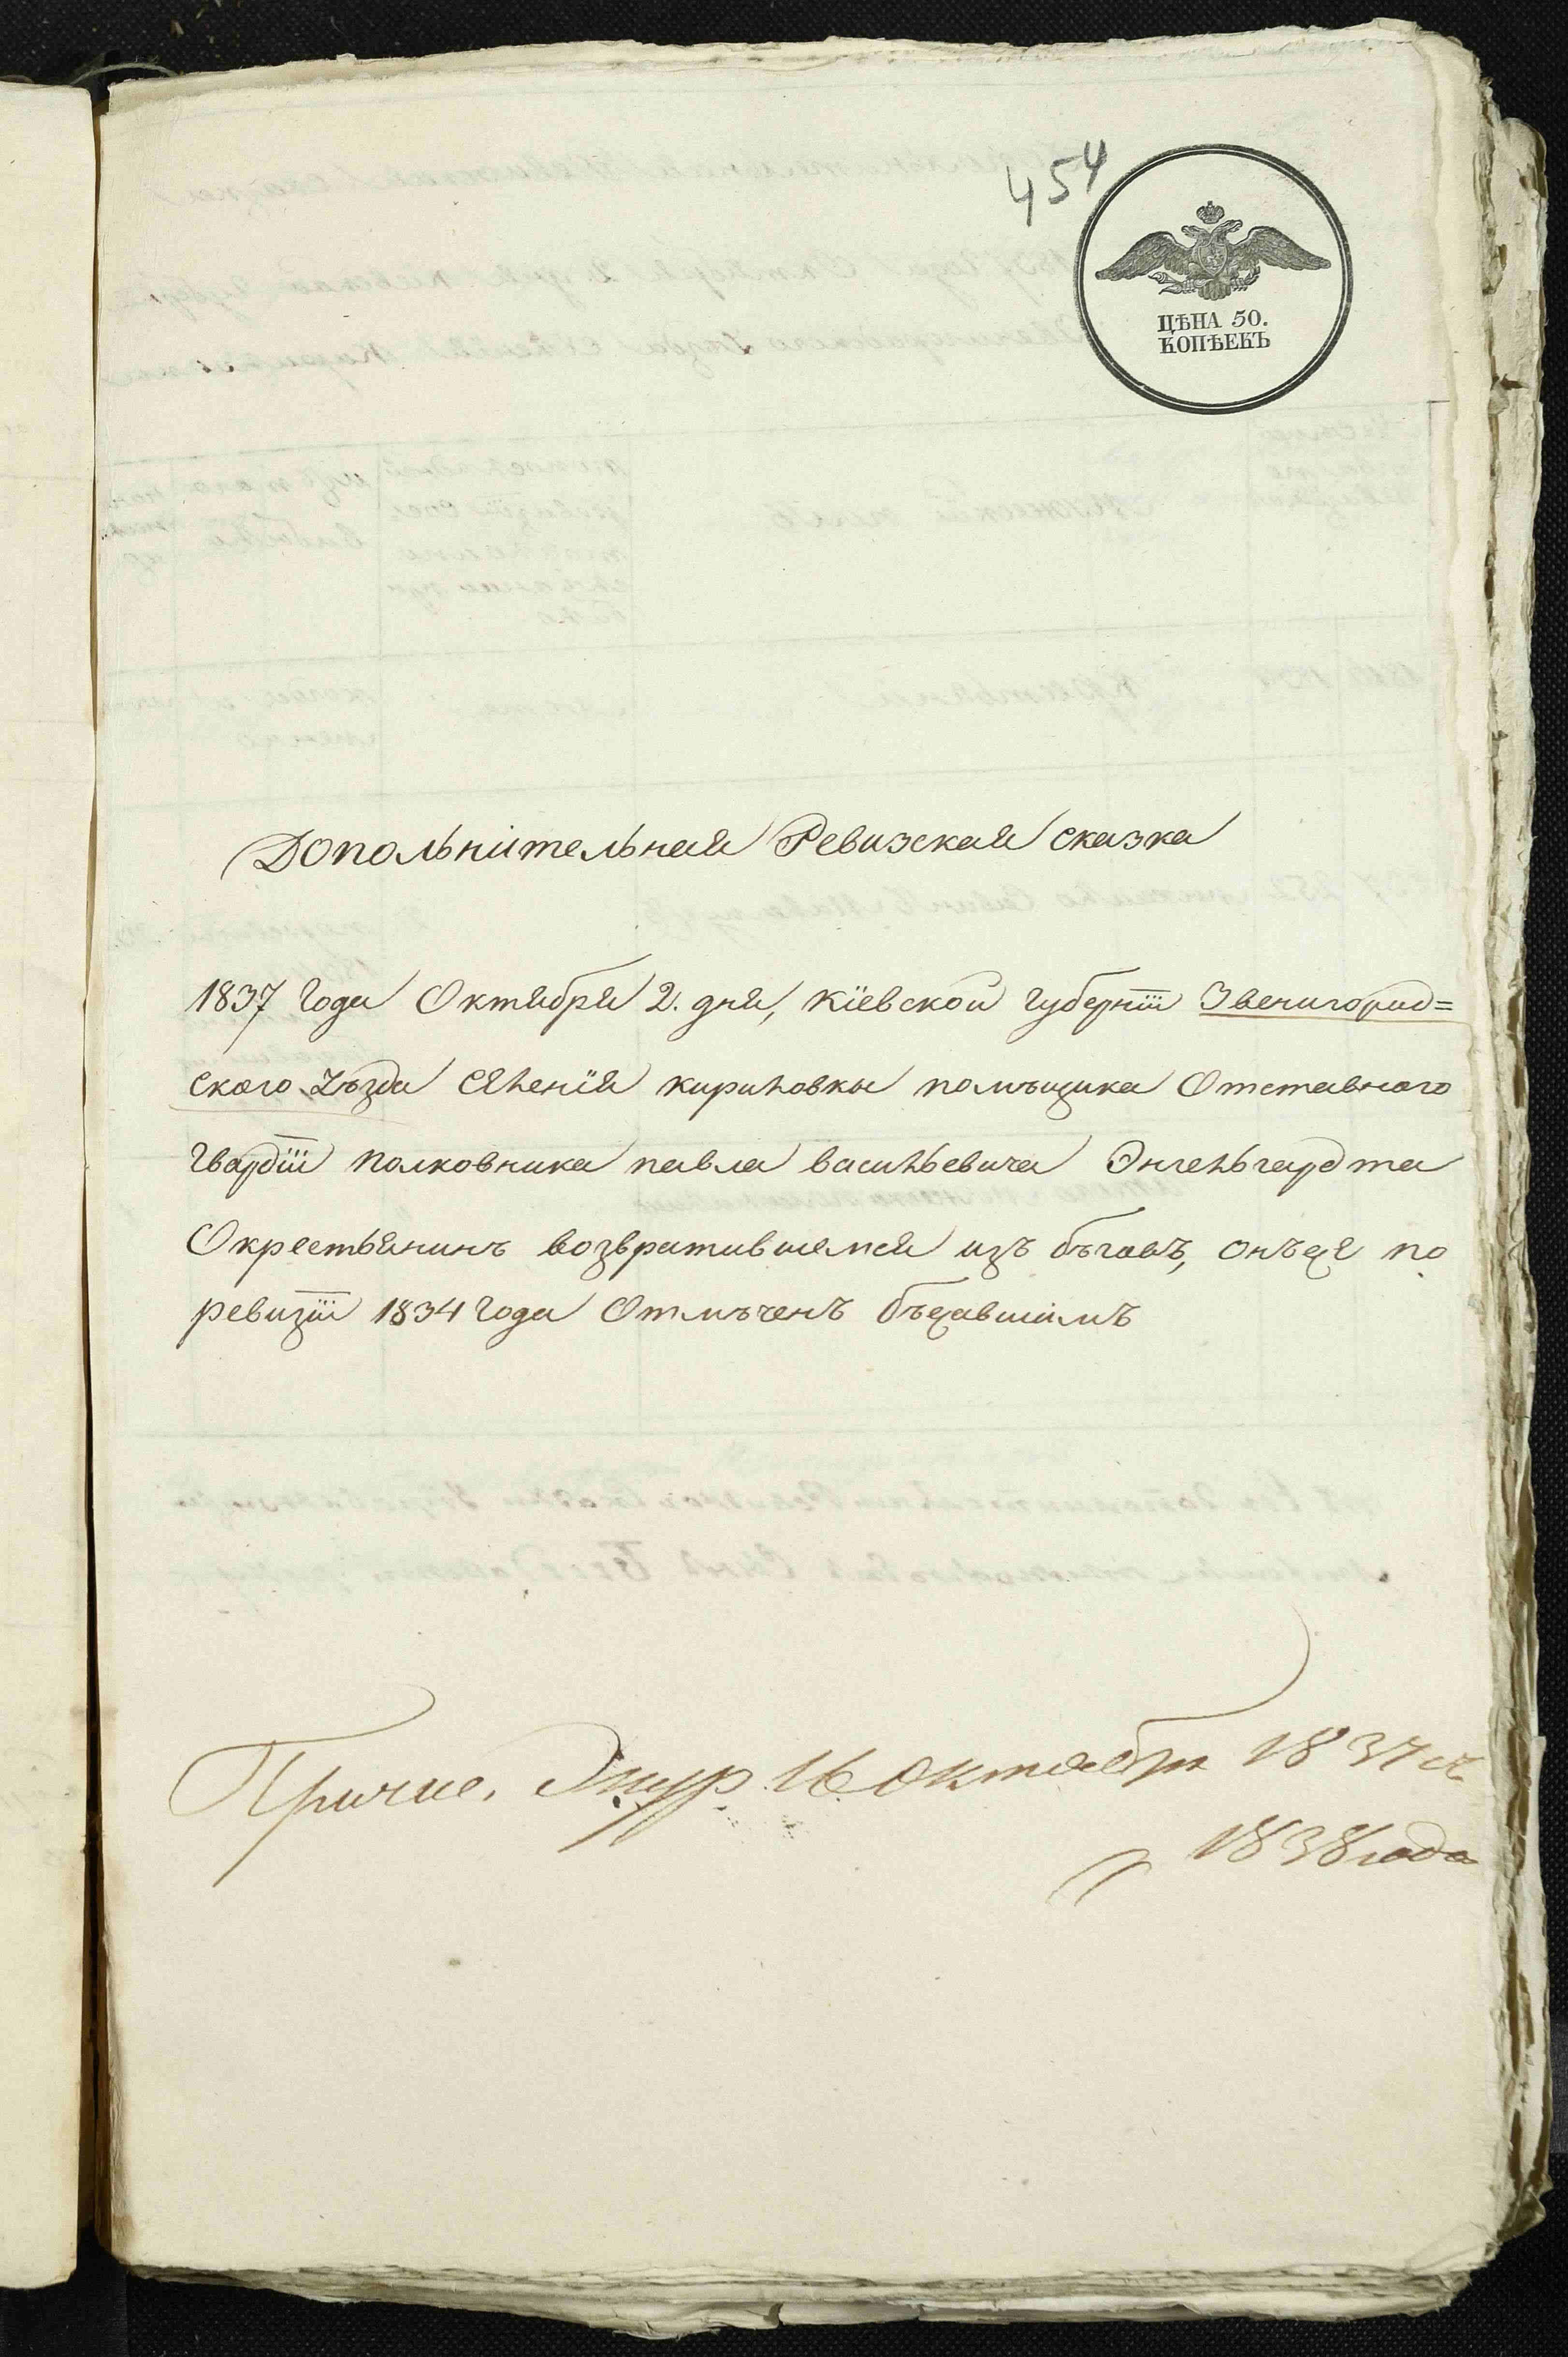 454
ЦѢНА 50.
КОПѢЕКЪ
Дополънительная Ревизская сказка
1837 Года Октября 2. дня, Кіевской губерніи Звенигород=
ского уѣзда Селенія кириловки помѣщика Отставного
Гвардіи полковника павла васильевича Энгельгардта
Окрестьянинъ возвратившемся изъ бѣговъ, онъже по
ревизіи 1834 Года Отмѣченъ бѣжавшимъ
Причис. 16 октября 1837 съ
1838 года